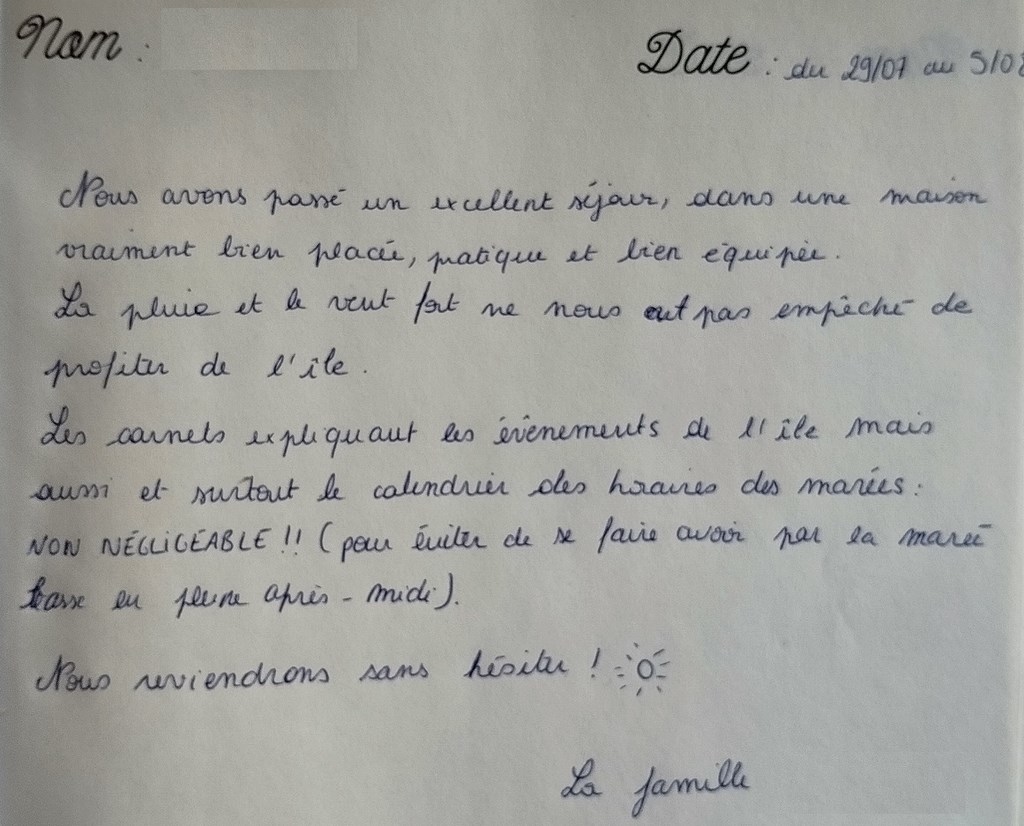 Nom :
Date : du 29/07 au 5/08
Nous avons passé un excellent séjour, dans une maison
vraiment bien placée, pratique et bien équipée.
La pluie et le vent fort ne nous ont pas empêché de
profiter de l'île.
Les carnets expliquant les évènements de l'île mais
aussi et surtout le calendrier des horaires des marées :
NON NÉGLIGÉABLE !! (pour éviter de se faire avoir par la marée
basse en pleine après-midi).
Nous reviendrons sans hésiter !
La famille